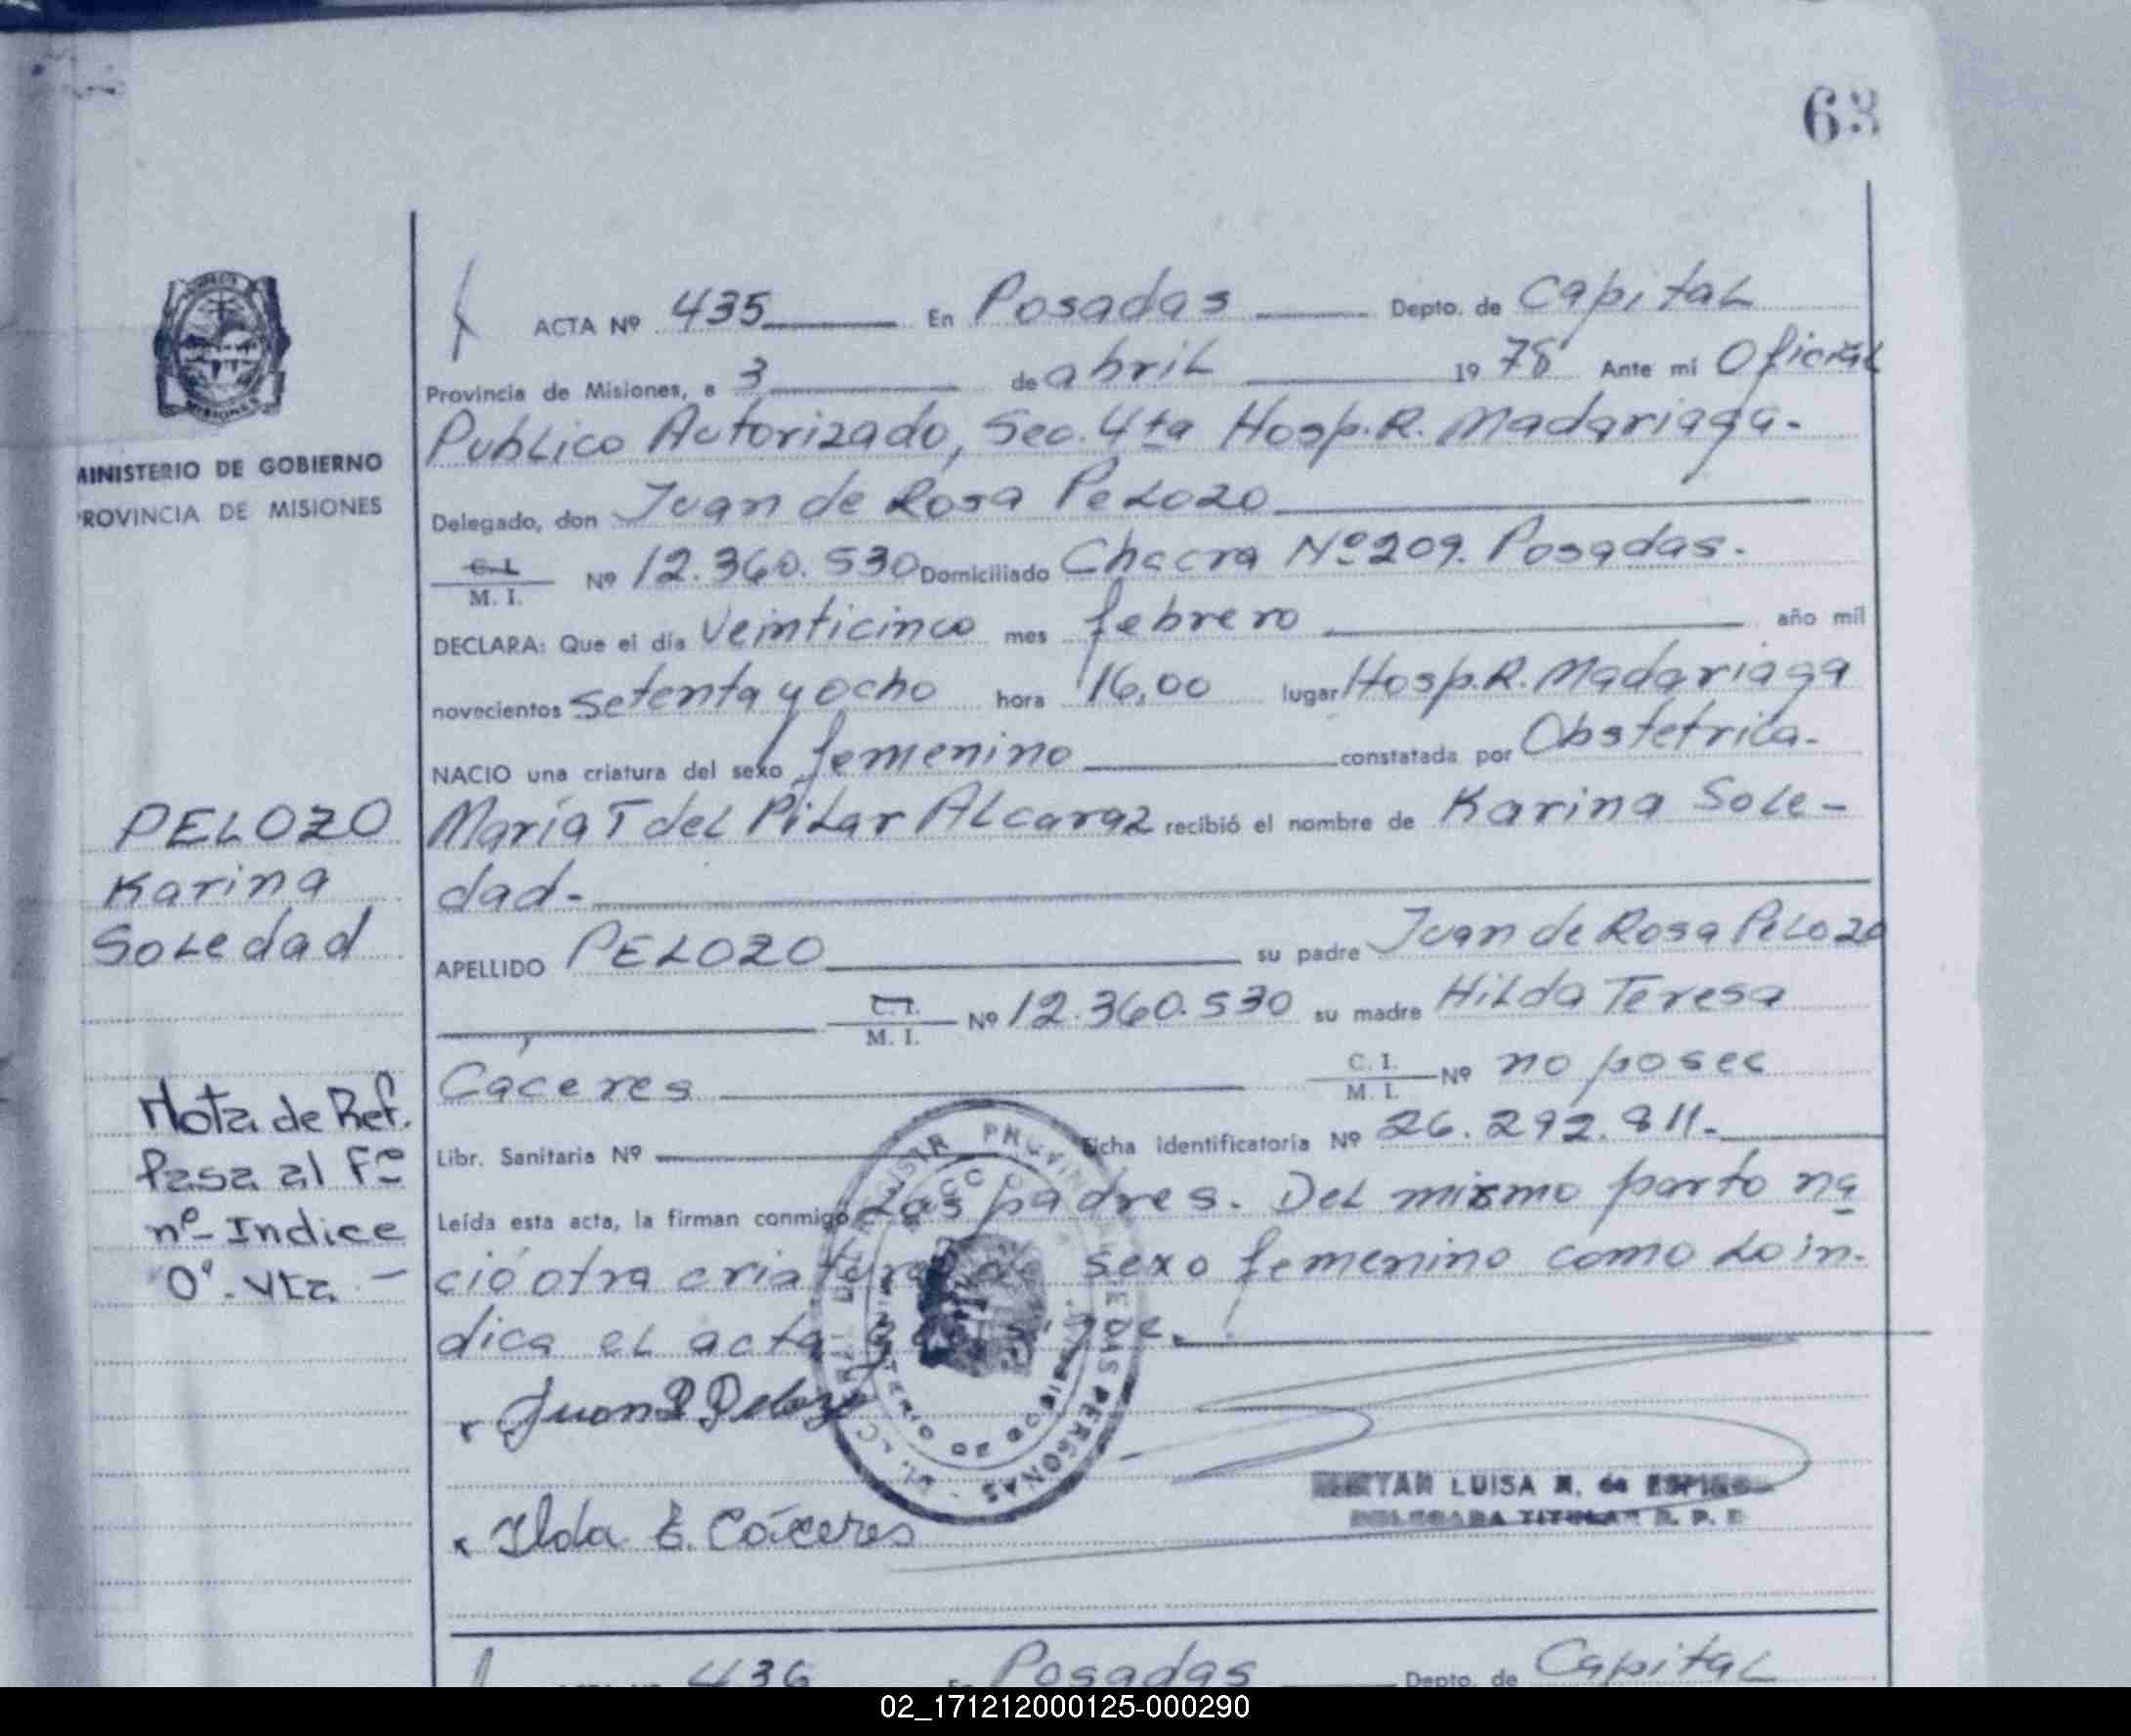 63
ACTA Nº 435 En Posadas Depto. de Capital
Provincia de Misiones, a 3 de abril 1978 Ante mí Oficial
Publico Autorizado, Sec. 4ta Hosp. R. Madariaga.
MINISTERIO DE GOBIERNO
PROVINCIA DE MISIONES
Delegado, don Juan de Rosa Pelozo
C.I. M. I. Nº 12.360.530 Domiciliado Chacra Nº 209. Posadas.
DECLARA: Que el día Veinticinco mes febrero año mil
novecientos setenta y ocho hora 16,00 lugar Hosp. R. Madariaga
NACIO una criatura del sexo femenino constatada por Obstetrica.
PELOZO
Karina
Soledad
María T del Pilar Alcaraz recibió el nombre de Karina Sole-
dad-
APELLIDO PELOZO su padre Juan de Rosa Pelozo
C.I. M. I. Nº 12.360.530 su madre Hilda Teresa
Cáceres C. I. M. I. Nº no posee
Nota de Ref.
Pasa al Fº
nº Indice
0'. Vta. -
Libr. Sanitaria Nº Ficha identificatoria Nº 26.292.811.
Leída esta acta, la firman conmigo los padres. Del mismo parto na
ció otra criatura de sexo femenino como lo in-
dica el acta que sigue.
Juan R Pelozo
Ilda E. Cáceres
LUISA
TITULAR
PERSONAS
ACTA Nº 436 En Posadas Depto. de Capital
02_171212000125-000290